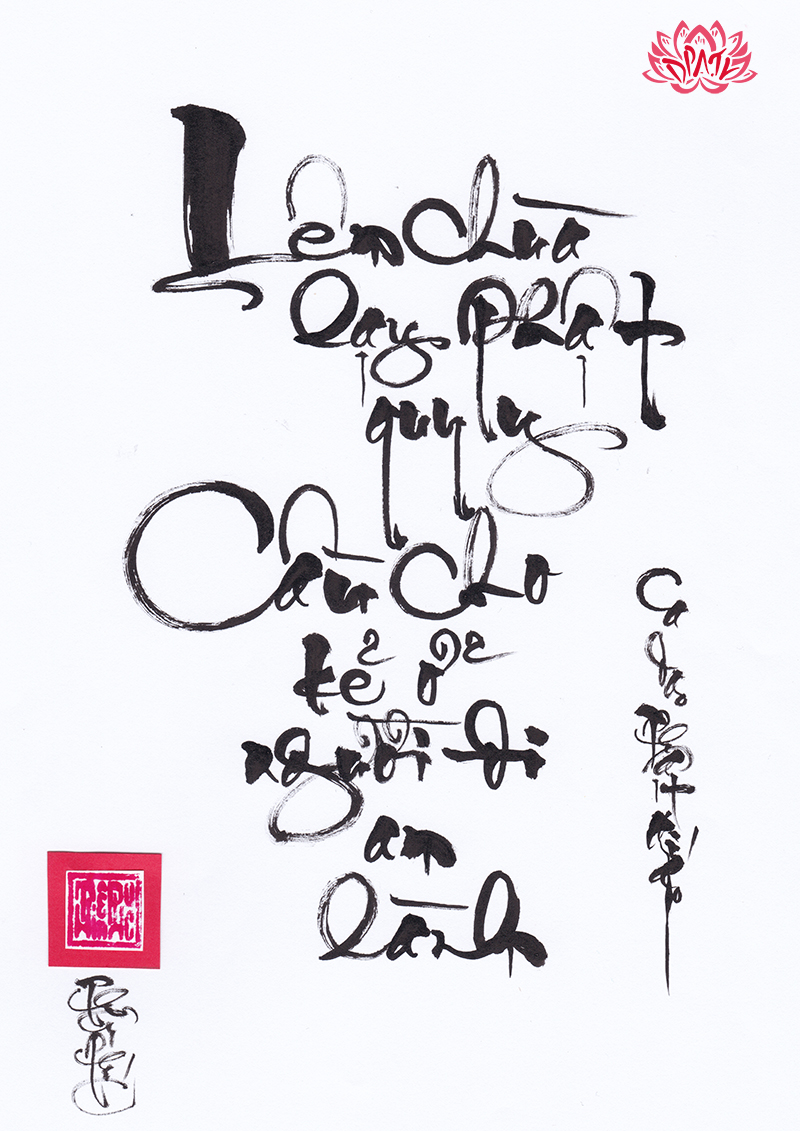 DPATK
Lên chùa
lạy Phật
quy y
Cầu cho
kẻ ở
người đi
an
lành
Ca dao
Phật giáo